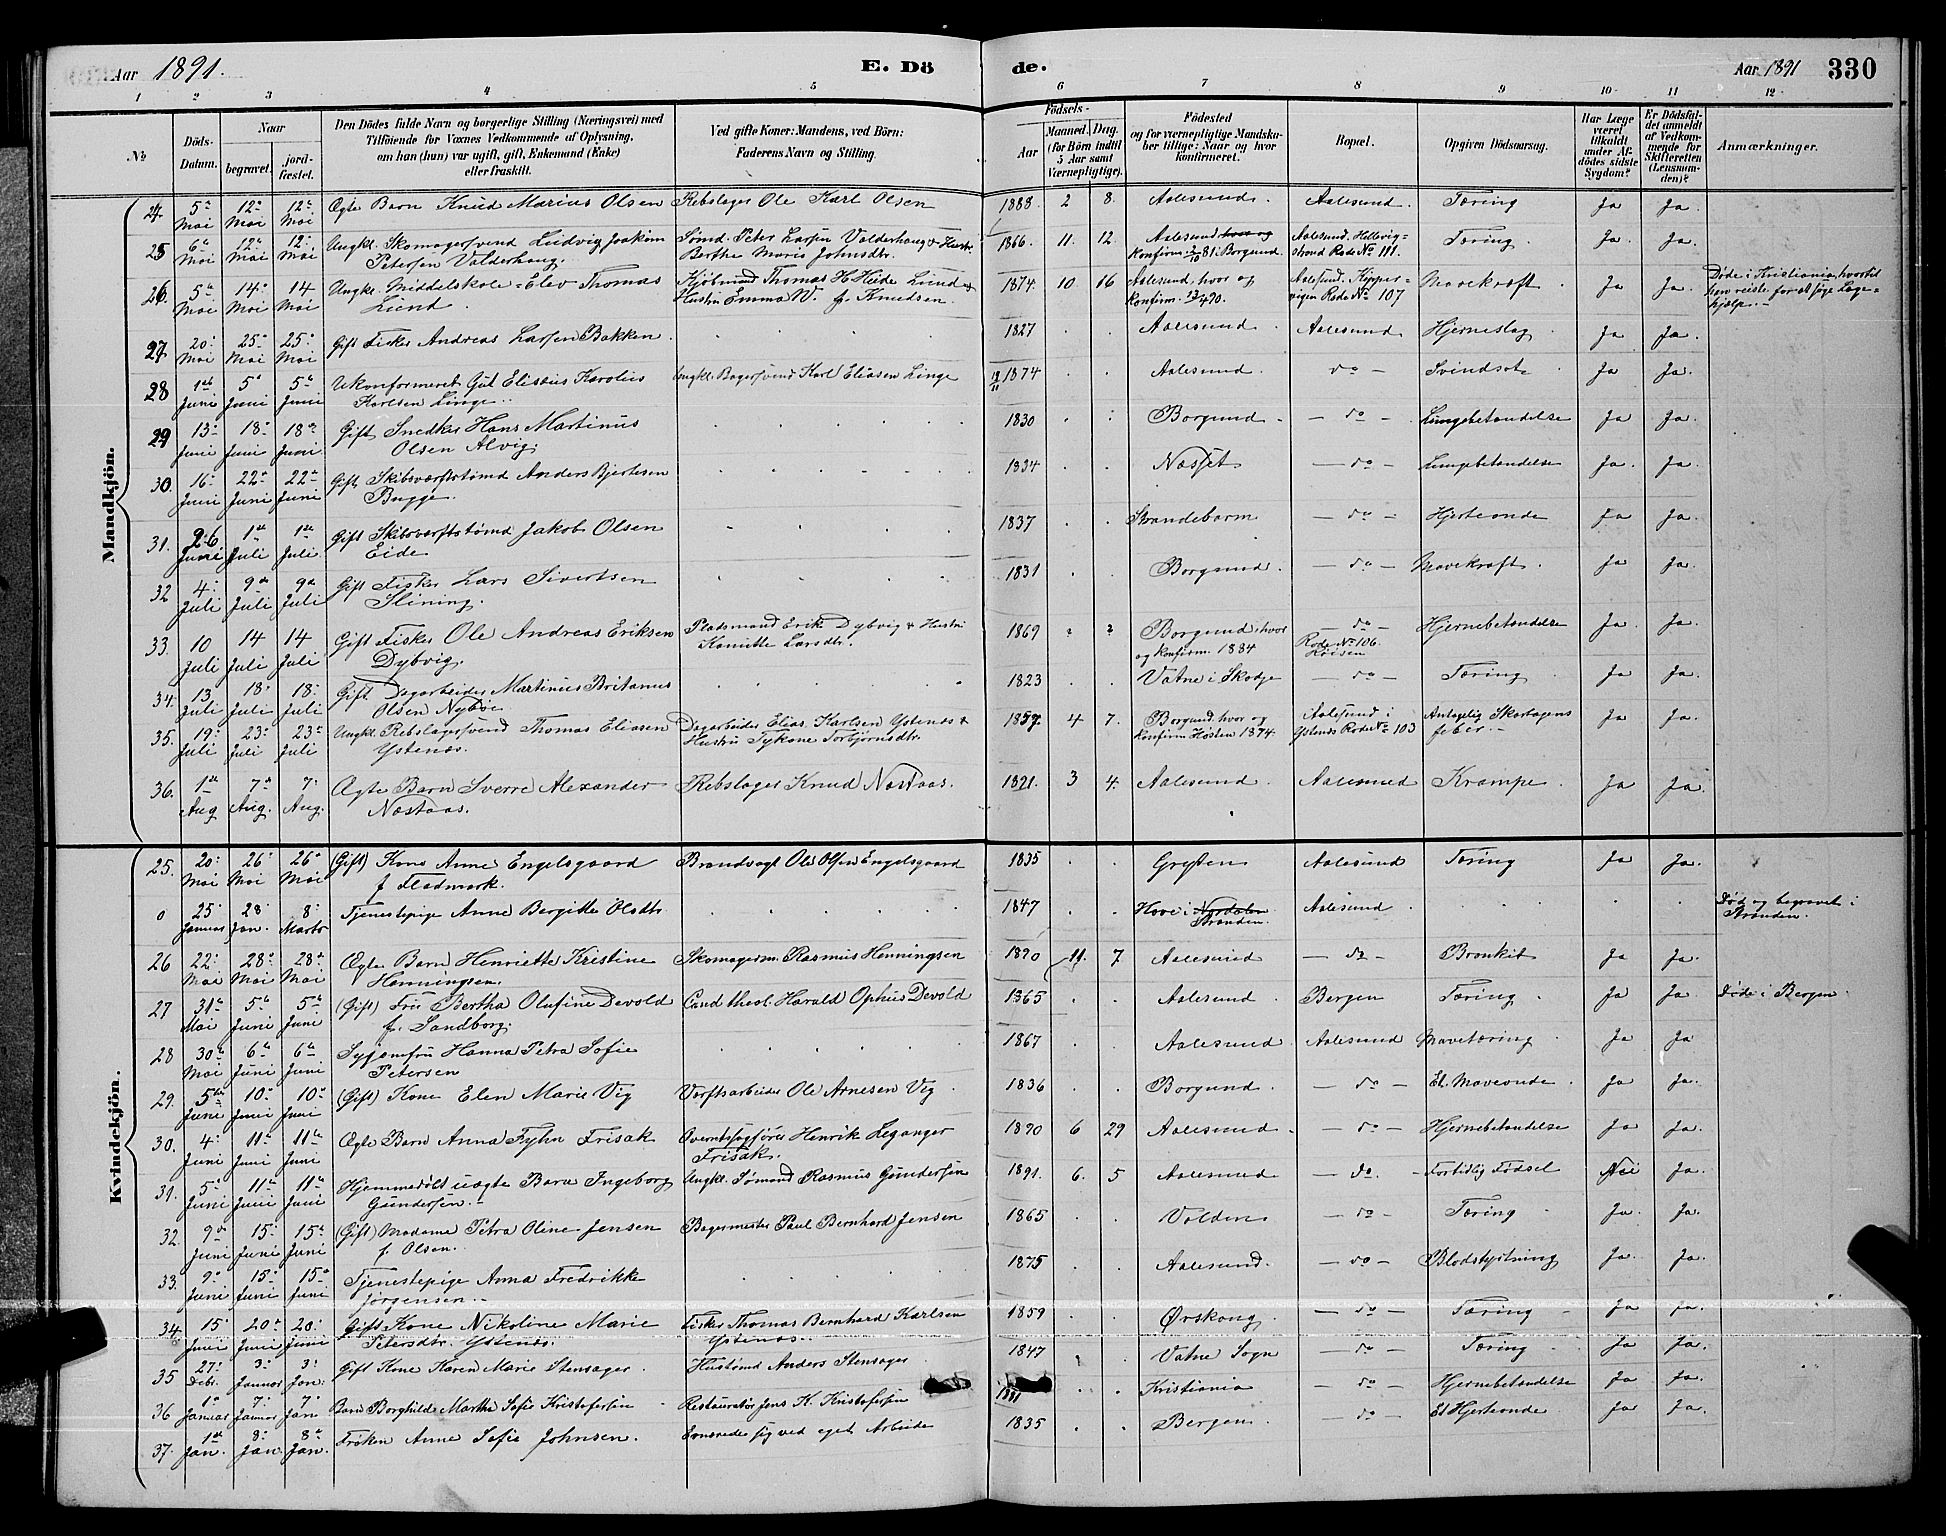 Aar 1891. E. Dö de. Aar 1891 330
1 2 3 4 5 6 7 8 9 10 11 12
No Döds-Datum. Naar begravet. jordfæstet. Den Dödes fulde Navn og borgerlige Stilling (Næringsvei) med Tilföiende for Voxnes Vedkommende af Oplysning, om han (hun) var ugift, gift, Enkemand (Enke) eller fraskilt. Ved gifte Koner: Mandens, ved Börn: Faderens Navn og Stilling. Födsels- Aar Maaned. Dag. (for Börn indtil 5 Aar samt Værnepligtige). Födested og for værnepligtige Mandskaber tillige: Naar og hvor konfirmeret. Bopæl. Opgiven Dödsaarsag. Har Læge været tilkaldt under Afdödes sidste Sygdom? Er Dödsfaldet anmeldt af Vedkommende for Skifteretten (Lensmanden)? Anmærkninger.
Mandkjön.
24. 5te Mai 12te Mai 12te Mai Ægte Barn Knud Marius Olsen Rebslager Ole Karl Olsen 1888. 2 8. Aalesund. Aalesund. Tæring Ja Ja.
25 6te Mai 12te Mai 12te Mai Ungkl. Skomagersvend Ludvig Joakim Petersen Valderhaug. Sömd. Peter Larsen Valderhaug & Hustr. Berthe Marie Johnsdtr. 1866. 11. 12. Aalesund hvor og konfirm. 2/10 81. Borgund. Aalesund. Hellvigstrand Rode No 111. Tæring. Ja. Ja.
26. 5te Mai 14te Mai 14 Mai Ungkl. Middelskole-Elev Thomas Lund Kjöbmand Thomas H. Heide Lund & Hustru Emma W. f. Knudsen. 1874. 10 16 Aalesund, hvor og konfirm. 13/4 90. Aalesund. Kippervigen Rode No 107 Mavekræft. Ja Ja. Döde i Kristiania, hvortil han reiste for at söge Lægehjælp.
27. 20. Mai 25. Mai 25. Mai Gift Fisker Andreas Larsen Bakken. 1827 Aalesund. Aalesund Hjerneslag Ja Ja.
28 1ste Juni 5te Juni 5te Juni Ukonfirmeret Gut Elisæus Karolius Karlsen Linge. Ungkl. Bagersvend Karl Eliasen Linge 1874 Aalesund. do - Svindsot Ja Ja.
29 13. Juni 18. Juni 18de Juni Gift Snedker Hans Martinus Olsen Alvig. 1830 Borgund. - do - Lungebetændelse Ja Ja.
30. 16. Juni 22de Juni 22de Juni Gift Skibsværftstömd Anders Bjertesen Bugge. 1834 Næsset - do - Lungebetændelse Ja. Ja.
31. 26 Juni 1ste Juli 1ste Juli Gift Skibsværftstömd Jakob Olsen Eide 1837 Strandebarm - do - Hjerteonde Ja Ja.
32 4. Juli 9de Juli 9de Juli Gift Fisker Lars Sivertsen Slining. 1831 Borgund. - do - Mavekræft. Ja Ja.
33. 10 Juli 14 Juli 14 Juli Gift Fisker Ole Andreas Eriksen Dybvig. Pladsmand Erik Dybvig & Hustru Larsdtr. 1869 ? ? Borgund, hvor og konfirm. 1884 - do - Rode No 106. Hjernebetændelse Ja Ja.
34. 13 Juli 18. Juli 18. Juli Gift Dagarbeider Martinus Britanus Olsen Nyböe 1823 Vatne i Skodje - do - Tæring Ja Ja
35. 19. Juli 23. Juli 23de Juli Ungkl. Rebslagersvend Thomas Eliasen Ystenæs. Dagarbeider Elias Karlsen Ystenæs & Hustru Torbjörnsdtr. 1859. 4 7. Borgund, hvor og konfirm. Hösten 1874. Aalesund i Ystenæs Rode No 103 Antagelig Skarlagensfeber. Ja Ja.
36. 1ste Aug 7de Aug. 7. Aug. Ægte Barn Sverre Alexander Næstaas. Rebslager Knud Næstaas. 1891. 3 4. Aalesund. Aalesund Krampe Ja Ja.
Kvindekjön.
25. 20. Mai 26. Mai 26. Mai (Gift) Kone Anne Engelsgaard f Fladmark. Brandvagt Ole Olsen Engelsgaard 1835 Gryten Aalesund Tæring Ja Ja.
0 25. Januar 28. Jan. 8. Marts Tjenestepige Anne Bergitte Olsdtr. 1847 Hove i Nordalen Stranden. Aalesund Död og begravet i Stranden.
26 22. Mai 28de Mai 28de Mai Ægte Barn Henriette Kristine Henningsen. Skomagerm. Rasmus Henningsen 1890 11. 7. Aalesund - do - Bronkit Ja Ja.
27 31te Mai 5te Juni 5te Juni (Gift) Frue Bertha Olufine Devold f. Sandborg. Cand. theol. Harald Ophus Devold 1865 Aalesund. Bergen Tæring Ja Ja. Döde i Bergen
28 30te Mai 6te Juni 6te Juni Syjomfru Hanna Petra Sofie Petersen 1867 Aalesund. Aalesund Mavetæring Ja Ja
29. 5te Juni 10. Juni 10. Juni (Gift) Kone Elen Marie Vig Værftsarbeider Ole Arnesen Vig 1836 Borgund. - do - Et Maveonde. Ja Ja.
30. 4. Juni 11te Juni 11te Juni Ægte Barn Anna Fyhn Frisak Overretssagförer Henrik Leganger Frisak. 1890 6 29 Aalesund. - do - Hjernebetændelse Ja Ja.
31. 5te Juni 11te Juni 11te Juni Hjemmedöbt uægte Barn Ingeborg Gundersen. Ungkl. Sömand Rasmus Gundersen 1891. 6. 5 Aalesund - do. - Fortidlig Födsel Nei Ja.
32. 9de Juni 15. Juni 15te Juni (Gift) Madame Petra Oline Jensen f. Olsen. Bagermester Paul Bernhard Jensen 1865 Volden - do - Tæring Ja. Ja.
33. 9. Juni 15. Juni 15. Juni Tjenestepige Anna Fredrikke Jörgensen. 1875 Aalesund. - do - Blodstyrtning Ja. Ja.
34 15. Juni 20de Juni 20. Juni Gift Kone Nikoline Marie Petersdtr. Ystenæs. Fisker Thomas Bernhard Karlsen Ystenæs. 1859 Örskoug. - do - Tæring Ja Ja.
35 27. Debr. 3. Januar 3. Jan. Gift Kone Karen Marie Stensager Anders Stensager 1847 Vatne Sogn - do - Tæring Ja Ja.
36 1. Januar 7. Januar 7. Jan Barn Borghilde Marthe Sofie Kristofersen Restauratör Jens K. Kristofersen Kristiania - do - Hjernebetændelse Ja Ja.
37. 1ste Jan. 8. Jan. 8de Jan. Fröken Anne Sofie Johnsen. Ernærede sig ved eget Arbeide 1835 Bergen. - do - Et Hjerteonde Ja Ja.